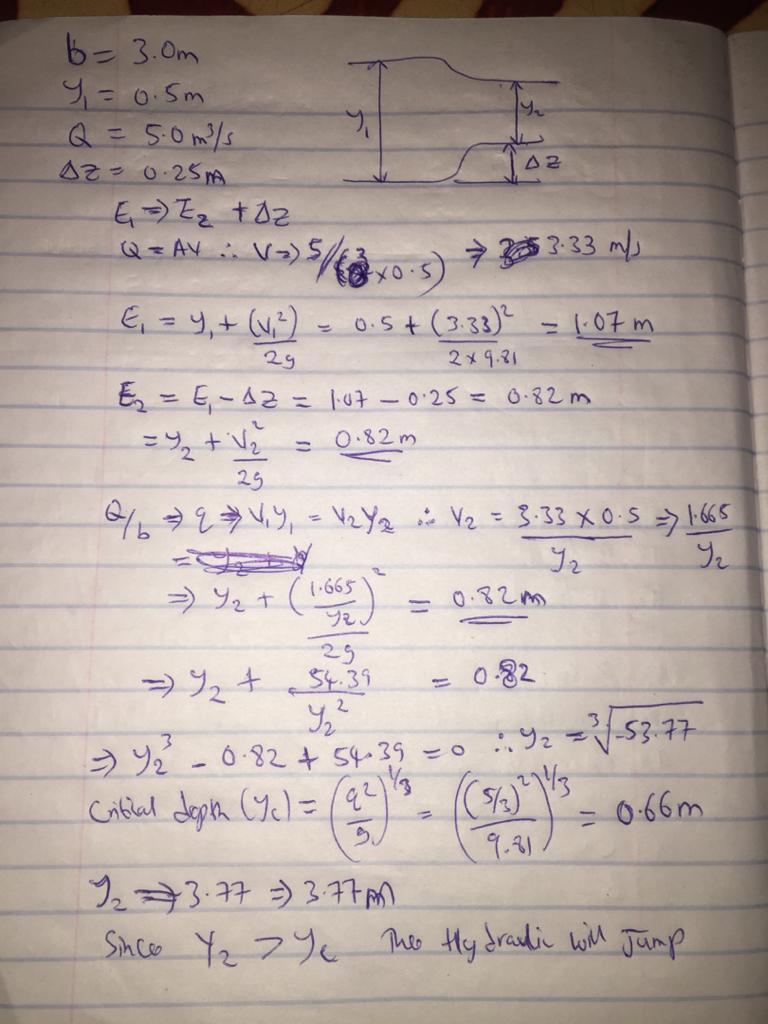 b = 3.0m
y₁ = 0.5m
Q = 5.0 m³/s
ΔZ = 0.25m
y₁
y₂
ΔZ
E₁ ⇒ E₂ + ΔZ
Q = AV ∴ V ⇒ 5/(3 × 0.5) ⇒ 3.33 m/s
E₁ = y₁ + (V₁²)/2g = 0.5 + (3.33)²/2 × 9.81 = 1.07 m
E₂ = E₁ - ΔZ = 1.07 - 0.25 = 0.82 m
= y₂ + V₂²/2g = 0.82 m
Q/b ⇒ q ⇒ V₁y₁ = V₂y₂ ∴ V₂ = 3.33 × 0.5/y₂ ⇒ 1.665/y₂
⇒ y₂ + (1.665/y₂)²/2g = 0.82m
⇒ y₂ + 54.39/y₂² = 0.82
⇒ y₂³ - 0.82 + 54.39 = 0 ∴ y₂ = ³√-53.77
Critical depth (yc) = (q²/g)^1/3 = ((5/3)²/9.81)^1/3 = 0.66m
y₂ ⇒ 3.77 ⇒ 3.77m
Since y₂ > yc The Hydraulic will Jump